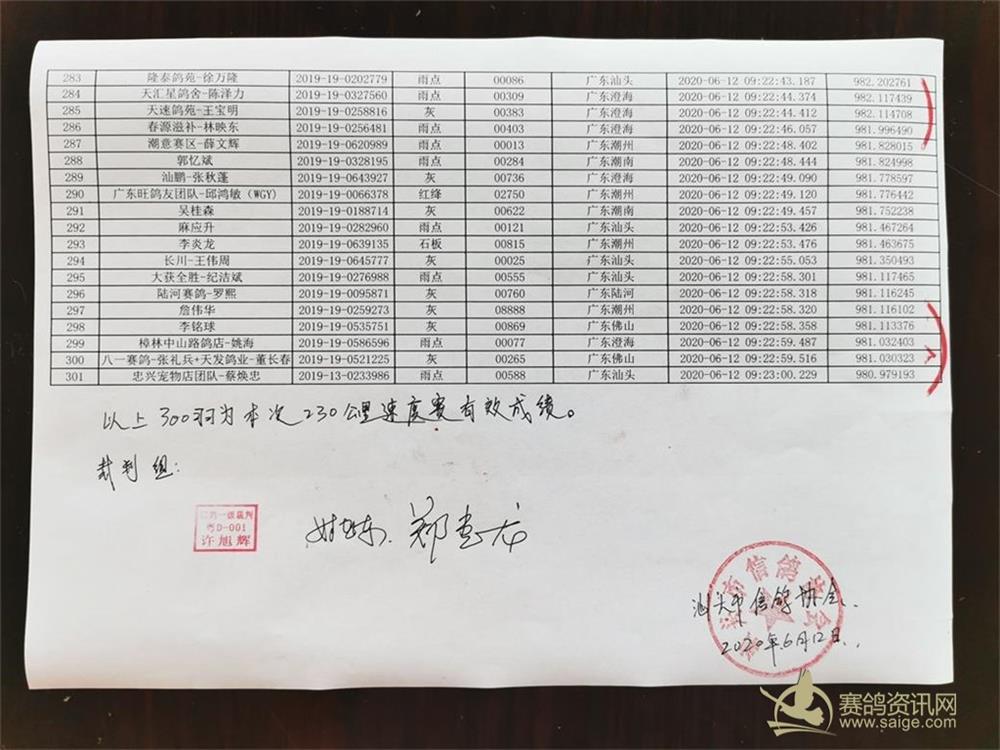 283 隆泰鸽苑-徐万隆 2019-19-0202779 雨点 00086 广东汕头 2020-06-12 09:22:43.187 982.202761
284 天汇星鸽舍-陈泽力 2019-19-0327560 雨点 00309 广东澄海 2020-06-12 09:22:44.374 982.117439
285 天速鸽苑-王宝明 2019-19-0258816 灰 00383 广东澄海 2020-06-12 09:22:44.412 982.114708
286 春源滋补-林映东 2019-19-0256481 雨点 00403 广东澄海 2020-06-12 09:22:46.057 981.996490
287 潮意赛区-薛文辉 2019-19-0620989 雨点 00013 广东潮州 2020-06-12 09:22:48.402 981.828015
288 郭忆斌 2019-19-0328195 雨点 00284 广东潮南 2020-06-12 09:22:48.444 981.824998
289 汕鹏-张秋蓬 2019-19-0643927 灰 00736 广东澄海 2020-06-12 09:22:49.090 981.778597
290 广东旺鸽友团队-邱鸿敏（WGY) 2019-19-0066378 红绛 02750 广东潮州 2020-06-12 09:22:49.120 981.776442
291 吴桂森 2019-19-0188714 灰 00622 广东潮南 2020-06-12 09:22:49.457 981.752238
292 麻应升 2019-19-0282960 雨点 00121 广东汕头 2020-06-12 09:22:53.426 981.467264
293 李炎龙 2019-19-0639135 石板 00815 广东潮州 2020-06-12 09:22:53.476 981.463675
294 长川-王伟周 2019-19-0645777 灰 00025 广东汕头 2020-06-12 09:22:55.053 981.350493
295 大获全胜-纪洁斌 2019-19-0276988 雨点 00555 广东汕头 2020-06-12 09:22:58.301 981.117465
296 陆河赛鸽-罗熙 2019-19-0095871 灰 00760 广东陆河 2020-06-12 09:22:58.318 981.116245
297 詹伟华 2019-19-0259273 灰 08888 广东潮州 2020-06-12 09:22:58.320 981.116102
298 李铭球 2019-19-0535751 灰 00869 广东佛山 2020-06-12 09:22:58.358 981.113376
299 樟林中山路鸽店-姚海 2019-19-0586596 雨点 00077 广东澄海 2020-06-12 09:22:59.487 981.032403
300 八一赛鸽-张礼兵+天发鸽业-董长春 2019-19-0521225 灰 00265 广东佛山 2020-06-12 09:22:59.516 981.030323
301 忠兴宠物店团队-蔡焕忠 2019-13-0233986 雨点 00588 广东汕头 2020-06-12 09:23:00.229 980.979193
以上300羽为本次230公里速度赛有效成绩。
裁判组:
一级裁判
粤D-001
许旭辉
汕头市信鸽协会
2020年6月12日
赛鸽资讯网
www.saige.com